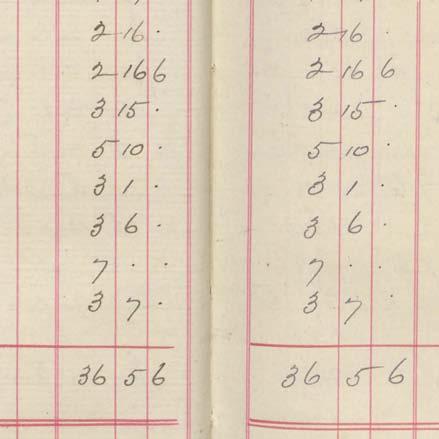 2 16 ·
2 16 6
3 15 ·
5 10 ·
3 1 ·
3 6 ·
7 · ·
3 7 ·
36 5 6
2 16 ·
2 16 6
3 15 ·
5 10 ·
3 1 ·
3 6 ·
7 · ·
3 7 ·
36 5 6